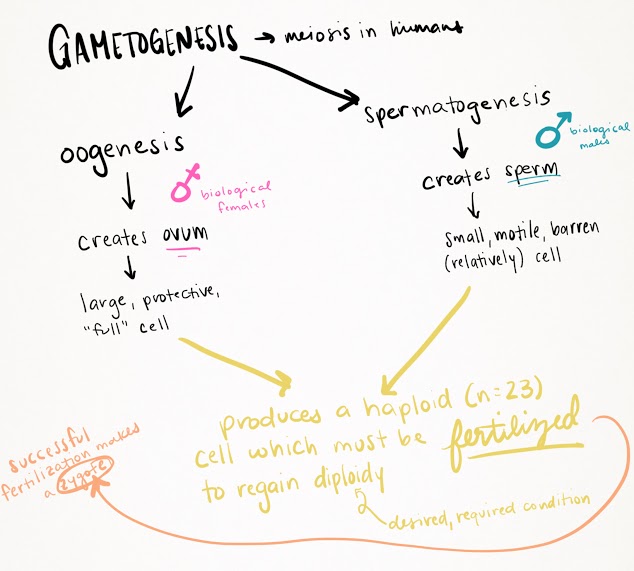 GAMETOGENESIS → meiosis in humans
oogenesis
♀ biological
females
creates ovum
large, protective,
"full" cell
spermatogenesis
♂ biological
males
creates sperm
small, motile, barren
(relatively) cell
produces a haploid (n=23)
cell which must be fertilized
to regain diploidy
desired, required condition
successful
fertilization makes
a zygote